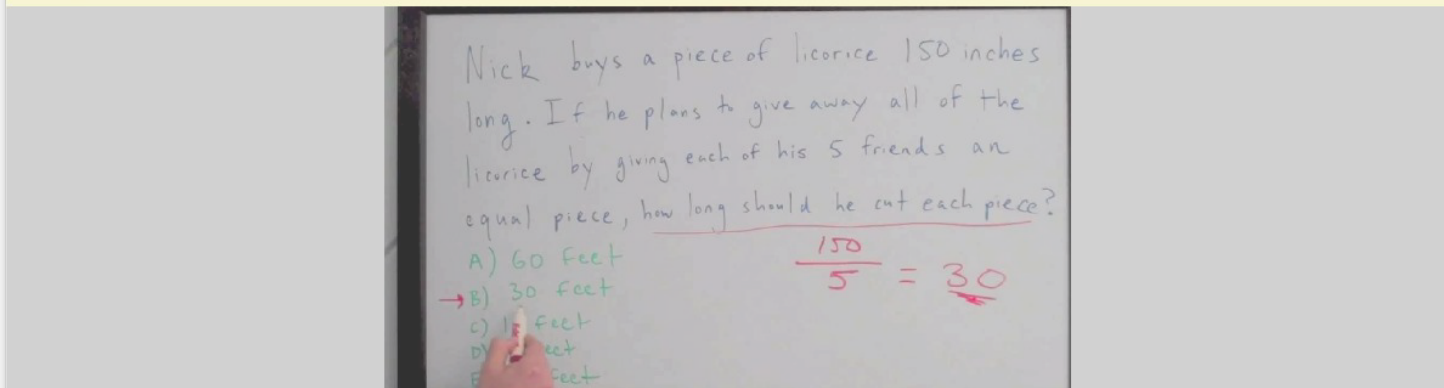 Nick buys a piece of licorice 150 inches
long. If he plans to give away all of the
licorice by giving each of his 5 friends an
equal piece, how long should he cut each piece?
A) 60 feet
→ B) 30 feet
C) feet
D)
E feet
150
5 = 30